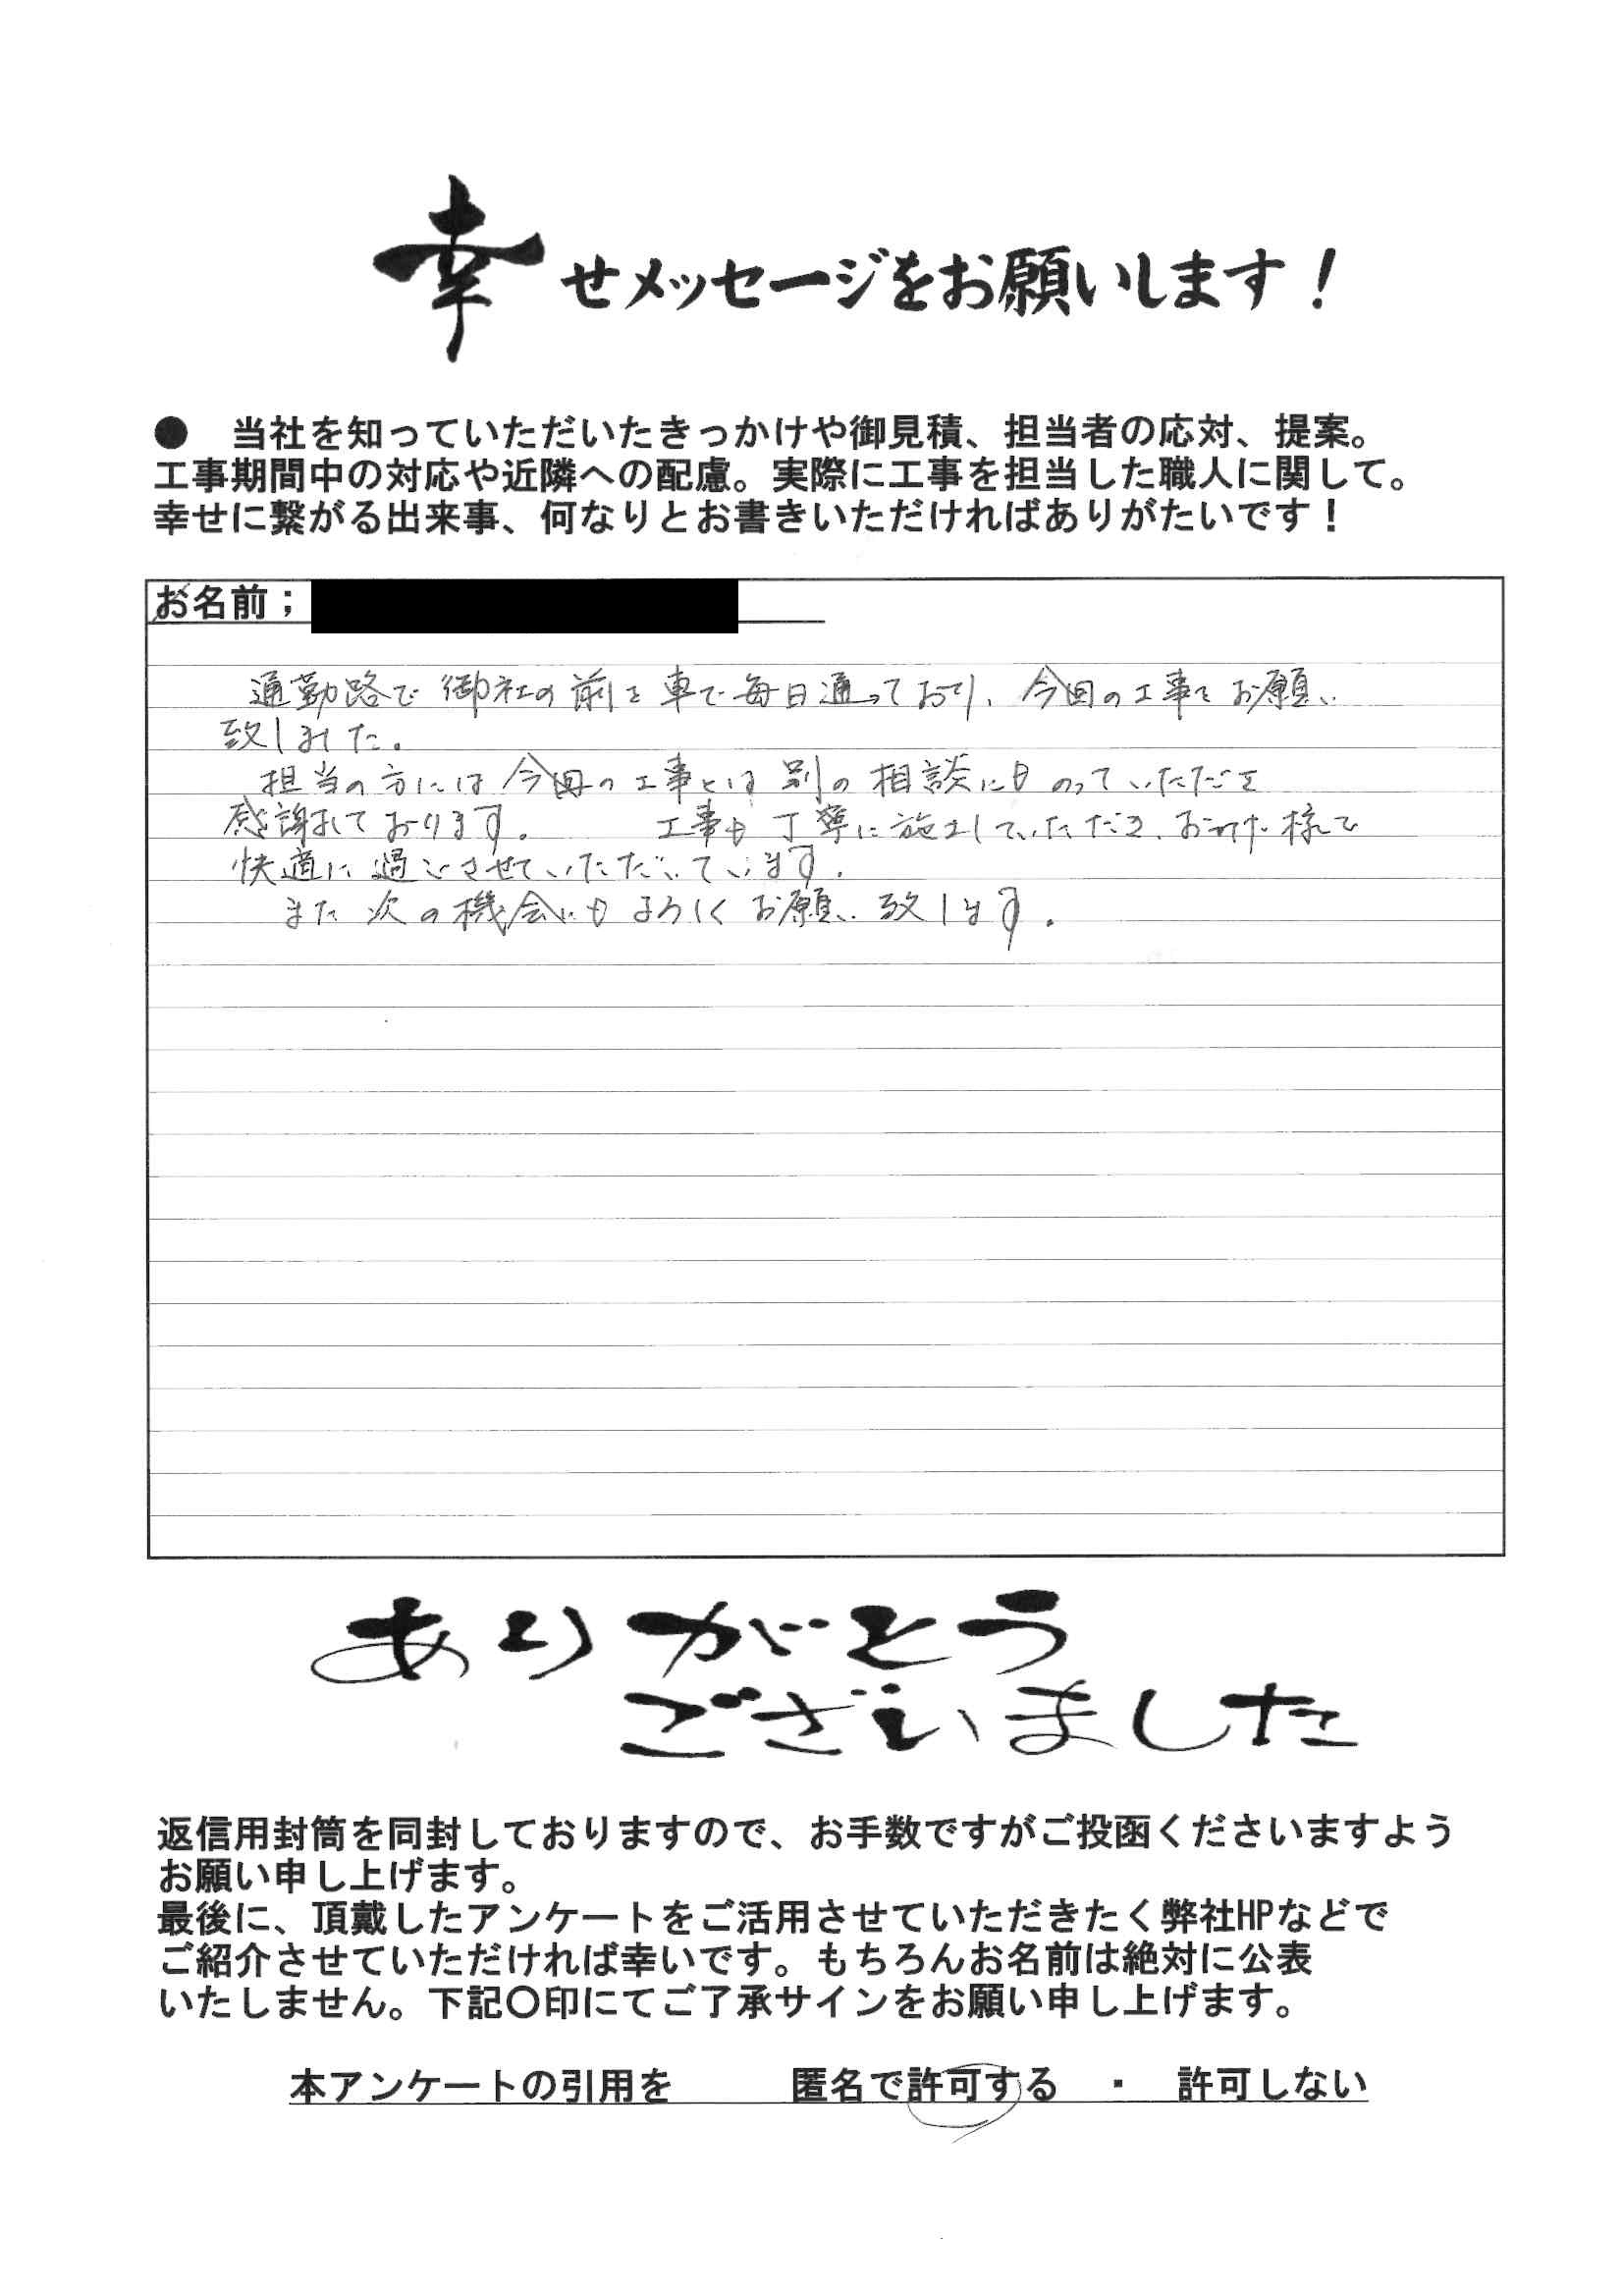 幸せメッセージをお願いします！
● 当社を知っていただいたきっかけや御見積、担当者の応対、提案。
工事期間中の対応や近隣への配慮。実際に工事を担当した職人に関して。
幸せに繋がる出来事、何なりとお書きいただければありがたいです！
お名前；
通勤路で御社の前を車で毎日通っており、今回の工事をお願い
致しました。
担当の方には今回の工事とは別の相談にものっていただき
感謝しております。 工事も丁寧に施工していただき、おかげ様で
快適に過ごさせていただいています。
また次の機会にもよろしくお願い致します。
ありがとう
ございました
返信用封筒を同封しておりますので、お手数ですがご投函くださいますよう
お願い申し上げます。
最後に、頂戴したアンケートをご活用させていただきたく弊社HPなどで
ご紹介させていただければ幸いです。もちろんお名前は絶対に公表
いたしません。下記〇印にてご了承サインをお願い申し上げます。
本アンケートの引用を 匿名で許可する ・ 許可しない